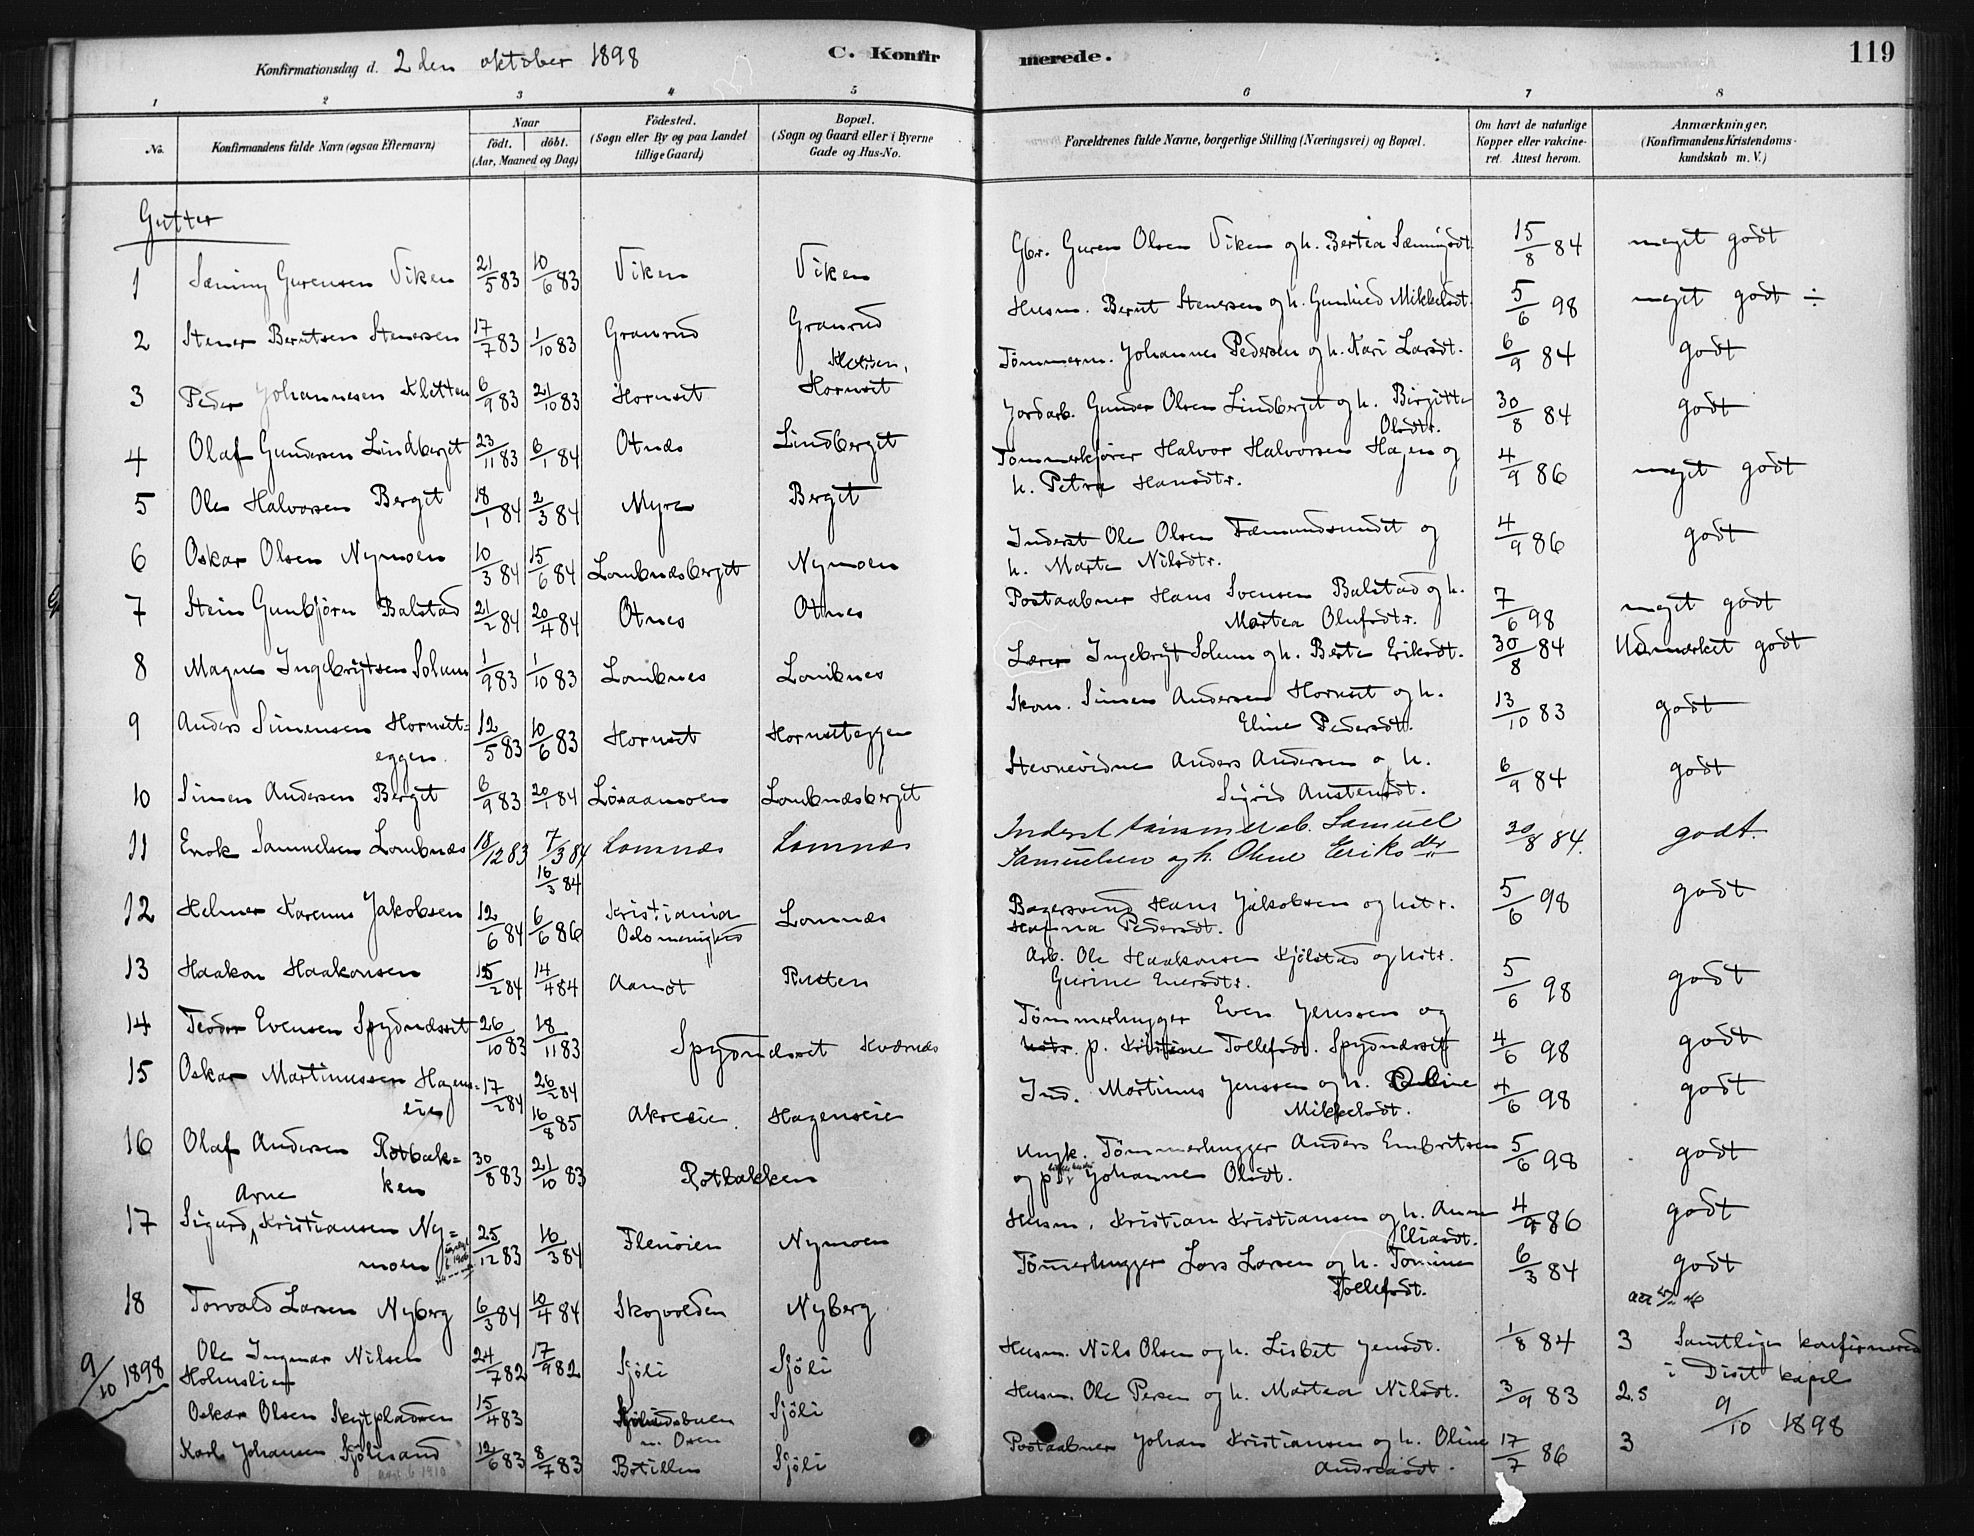 Konfirmationsdag d. 2den oktober 1898 C. Konfirmerede. 119
1 2 3 4 5 6 7 8
No. Konfirmandens fulde Navn (ogsaa Efternavn) Naar födt. döbt. (Aar, Maaned og Dag) Födested. (Sogn eller By og paa Landet tillige Gaard) Bopæl. (Sogn og Gaard eller i Byerne Gade og Hus-No. Forældrenes fulde Navne, borgerlige Stilling (Næringsvei) og Bopæl. Om havt de naturlige Kopper eller vakcineret. Attest herom. Anmærkninger. (Konfirmandens Kristendomskundskab m. V.)
Gutter
1 Sæming Gurensen Viken 21/5 83 10/6 83 Viken Viken Gbr. Guren Olsen Viken og h. Bertea Sæmingsdt. 15/8 84 meget godt
2 Stener Berntsen Stenersen 17/7 83 1/10 83 Granrud Granrud Husm. Bernt Stenersen og h. Gunhild Mikkelsdt. 5/6 98 meget godt ÷
3 Peder Johannesen Kletten 6/9 83 21/10 83 Hornset Kletten, Hornset Tømmerm. Johannes Pedersen og h. Kari Larsdt. 6/9 84 godt
4 Olaf Gundersen Lindberget 23/11 83 6/1 84 Otnæs Lindberget Jordarb. Gunder Olsen Lindberget og h. Birgitte Olsdtr. 30/8 84 godt
5 Ole Halvorsen Berget 18/1 84 2/3 84 Myre Berget Tømmerkjører Halvor Halvorsen Hagen og
h. Petra Hansdtr. 4/9 86 meget godt
6 Oskar Olsen Nymoen 10/3 84 15/6 84 Lombnæsberget Nymoen Inderst Ole Olsen Fæmundsundet og
h. Marte Nilsdtr. 4/9 86 godt
7 Stein Gunbjörn Balstad 21/2 84 20/4 84 Otnes Otnes Postaabner Hans Svensen Balstad og h.
Martea Olufsdtr. 7/6 98 meget godt
8 Magne Ingebrigtsen Solum 1/9 83 1/10 83 Lombnes Lombnes Lærer Ingebrigt Solum og h. Berte Eriksdt. 30/8 84 Udmærket godt
9 Anders Simensen Hornset=
eggen 12/5 83 10/6 83 Hornset Hornseteggen Skom. Simen Andersen Hornset og h.
Eline Pedersdt. 13/10 83 godt
10 Simen Andersen Berget 6/9 83 20/1 84 Løsaamoen Lombnæsberget Stevnevidne Anders Andersen og h.
Sigrid Anstensdt. 6/9 84 godt
11 Enok Samuelsen Lombnæs 18/12 83 7/3 84 16/3 84 Lomnæs Lomnæs Inderst tømmerarb. Samuel
Samuelsen og h. Oline Eriksdtr 30/8 84. godt.
12 Helmer Karenus Jakobsen 12/6 84 6/6 86 Kristiania Oslo menighed Lomnæs Bagersvend Hans Jakobsen og hstr.
Hafna Pedersdt. 5/6 98 godt
13 Haakon Haakonsen 15/2 84 14/4 84 Aamot Rusten Arb. Ole Haakonsen Kjölstad og hstr.
Gurine Enersdtr. 5/6 98 godt
14 Teodor Evensen Spydnæsset 26/10 83 18/11 83 Spydnæsset Kværnæs Tømmerhugger Even Jenssen og
hstr. p. Kristine Tollefsdt. Spydnæsset 4/6 98 godt
15 Oskar Martinussen Hagens=
eie 17/2 84 26/2 84 16/8 85 Akreeie. Hagenseie Ind. Martinus Jenssen og h. Oline
Mikkelsdt. 4/6 98 godt
16 Olaf Andersen Rotbak=
ken 30/8 83 21/10 83 Rotbakken Ungk. Tømmerhugger Anders Embretsen
og p. Johanne Olsdt. 5/6 98 godt
17 Sigurd Arne Kristiansen Ny=
moen 25/12 83 16/3 84 Flenöien Nymoen Husm. Kristian Kristiansen og h. Anne
Eliasdt. 4/9 86 godt
18 Torvald Larsen Nyberg 6/3 84 10/4 84 Skogvolden Nyberg Tømmerhugger Lars Larsen og h. Tomine
Tollefsdt. 6/3 84 godt
9/10 1898 Ole Ingmar Nilsen
Holmslien 24/7 82 17/9 82 Sjöli Sjöli Husm. Nils Olsen og h. Lisbet Jensdt. 1/8 84 3 Samtlige konfirmered
i Diset kapel
9/10 1898
Oskar Olsen Skytpladsen 15/4 83 Osen Sjöli Husm. Ole Persen og h. Martea Nilsdt. 3/9 83 2.5
Karl Johansen Sjölisand 12/6 83 8/7 83 Bötillen Sjöli Postaabner Johan Kristiansen og h. Oline
Andreasdt. 17/7 86 3